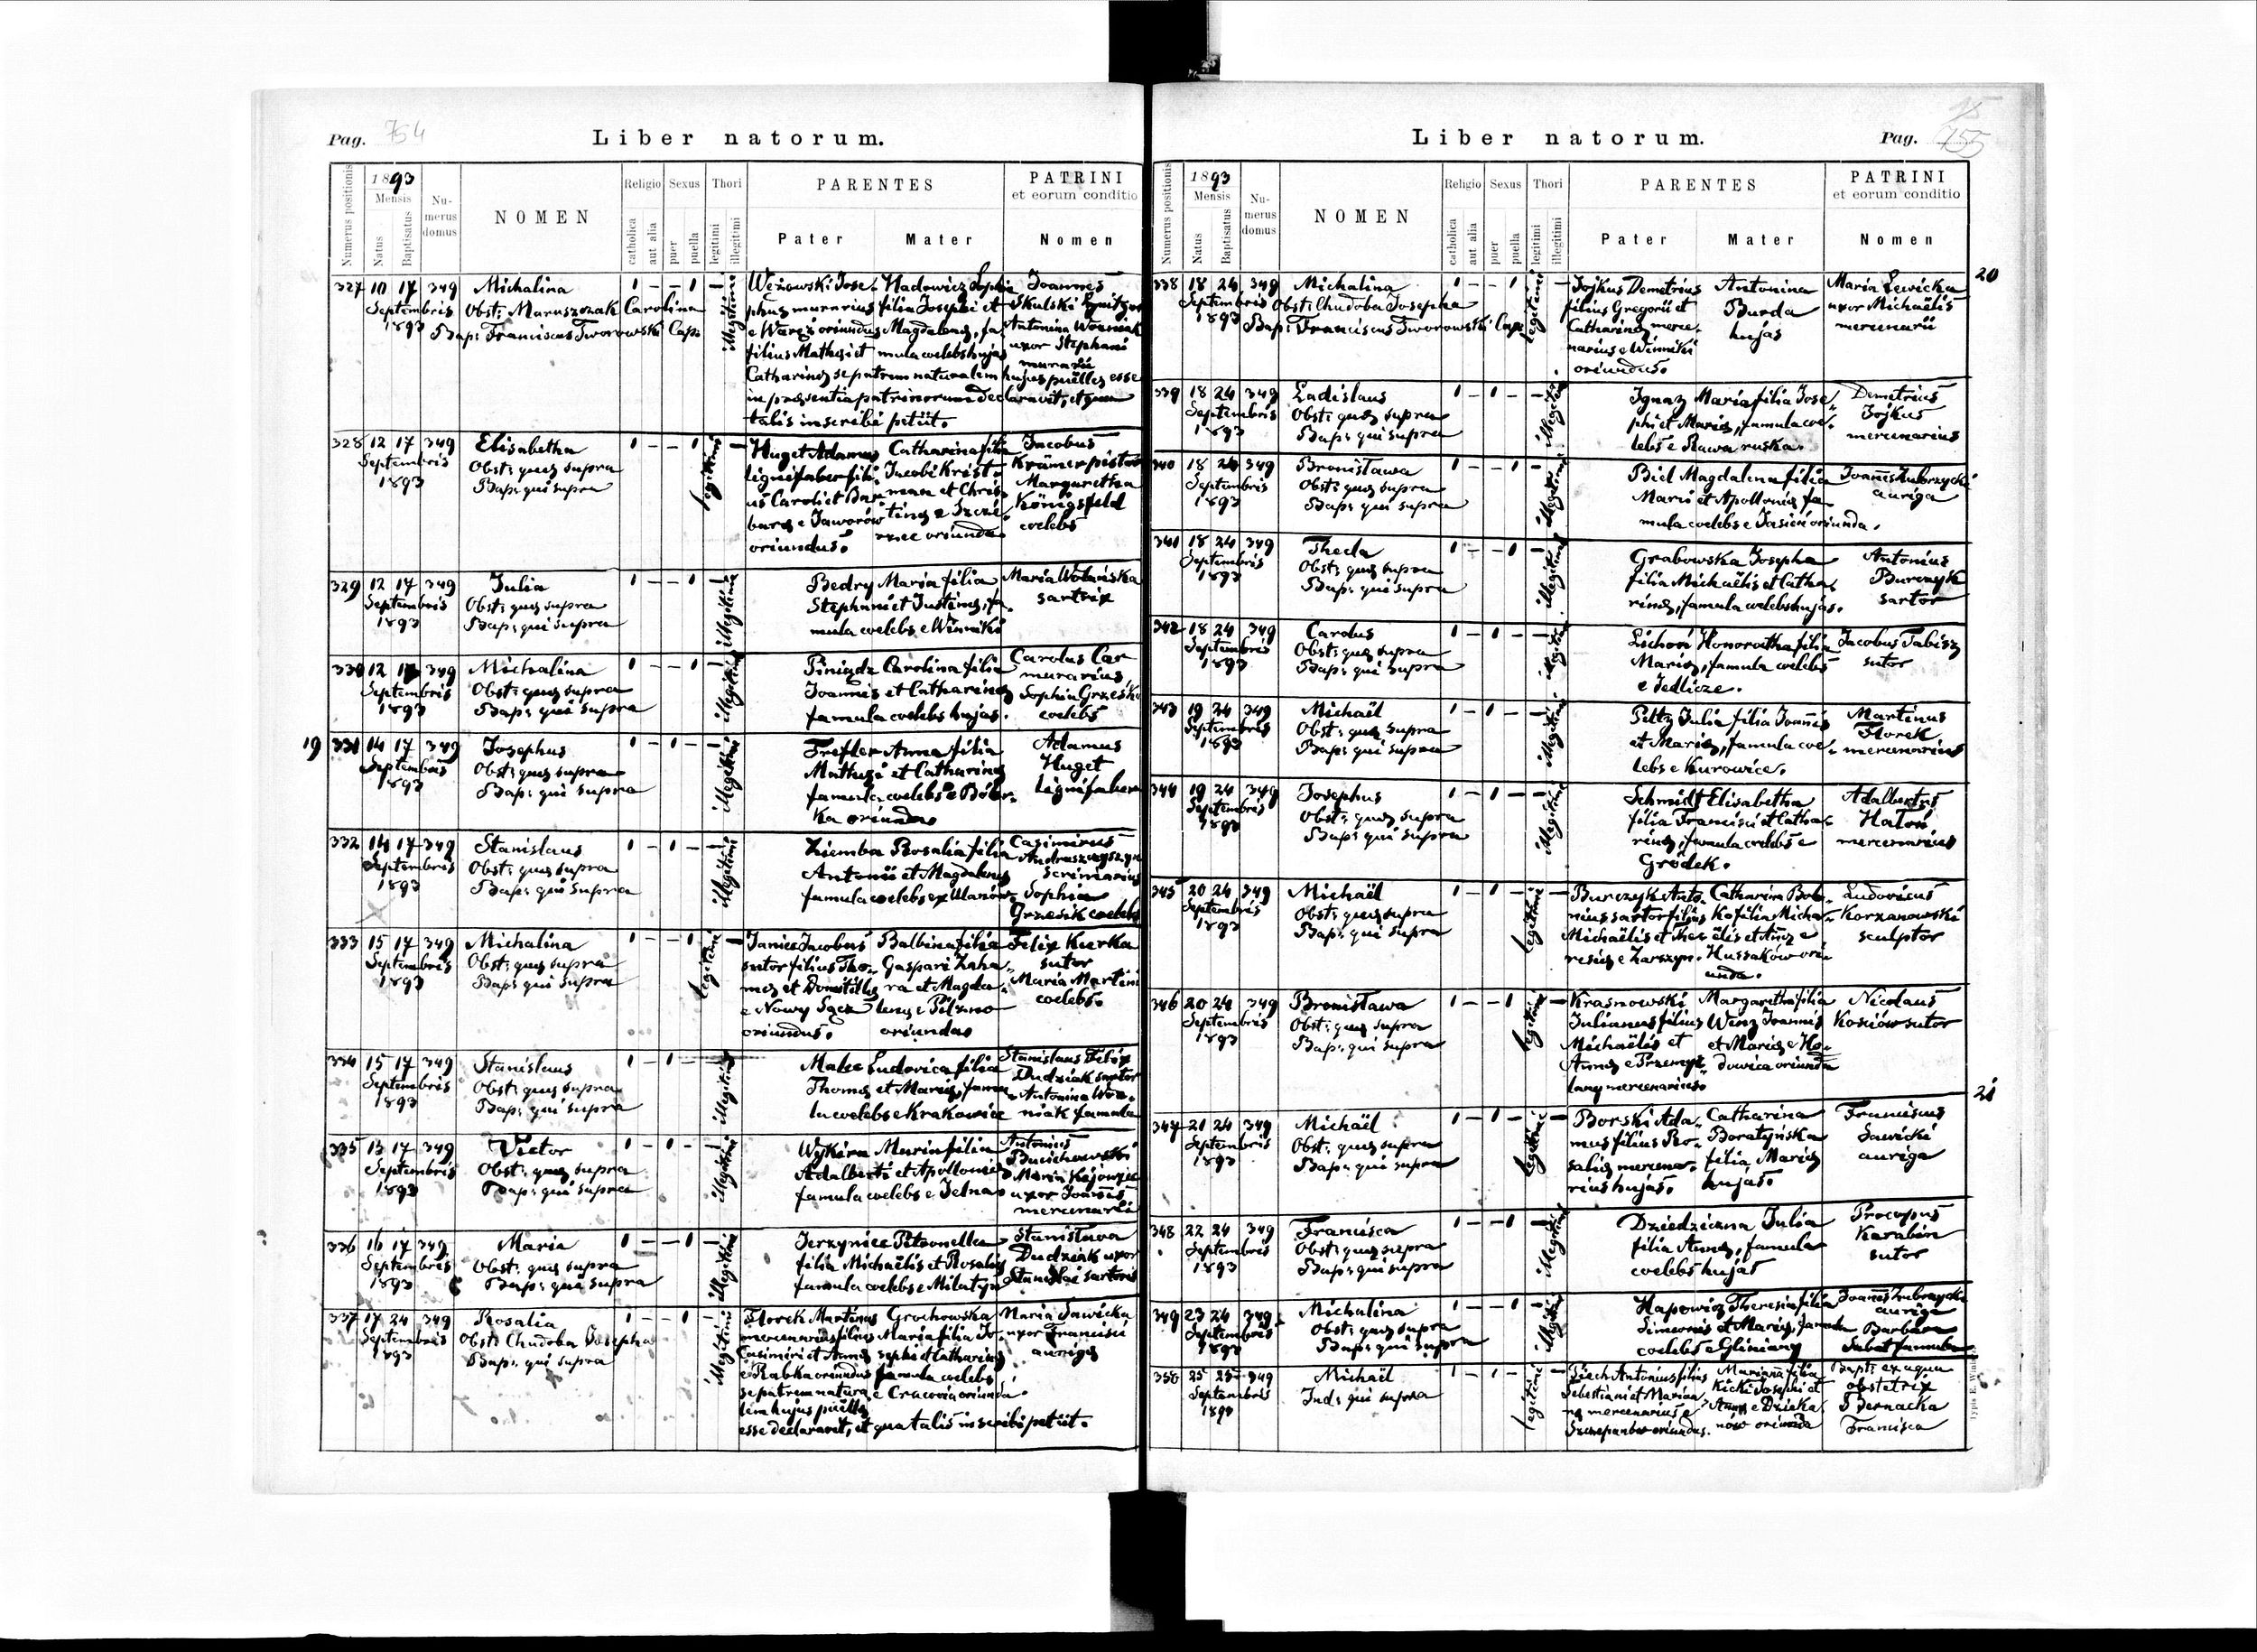 Pag. 754
Liber natorum.
Numerus positionis
1893
Mensis
Natus
Baptisatus
Numerus domus
NOMEN
Religio
catholica
aut alia
Sexus
puer
puella
Thori
legitimi
illegitimi
PARENTES
Pater
Mater
PATRINI
et eorum conditio
Nomen
327 10 17 349 Michalina 1 - - 1 -
Septembris Obst: Maruszczak Carolina
1893 Bap: Franciscus Tworowski Cap:
illegitimi
Wężowski Jose-
phus murarius
e Waręż oriundus
filius Mathei et
Hadowicz Sophi
filia Josephi et
Magdalenę, fa
mula coelebs hujas
Catharinę se patrem naturalem hujus puellę esse
in pręsentia patrinorum declaravit, et qua
talis inscribi petiit.
Joannes
Skulski
Antonina Woźniak
uxor Stephani
murarii
328 12 17 349 Elisabetha 1 - - 1 -
Septembris Obst: quę supra
1893 Bap: qui supra
legitimi
Huget Adamus
lignifaber fili-
us Caroli et Bar-
barę e Jaworów
oriundus.
Catharina filia
Jacobi Krist-
man et Chris-
tinę e
oriunda
Jacobus
Krämer pistor
Margaretha
Königsfeld
coelebs
329 12 17 349 Julia 1 - - 1
Septembris Obst: quę supra
1893 Bap: qui supra
illegitimi
Bedry Maria filia
Stephani et Justinę, fa-
mula coelebs e Winniki
Maria Wolańska
sartrix
330 12 17 349 Michalina 1 - - 1
Septembris Obst: quę supra
1893 Bap: qui supra
illegitimi
Piniądz Carolina filia
Joannis et Catharinę
famula coelebs hujas.
Carolus Car
murarius,
Sophia
coelebs
19
331 14 17 349 Josephus 1 - 1 -
Septembris Obst: quę supra
1893 Bap: qui supra
illegitimi
Trefler Anna filia
Mathęi et Catharinę
famula coelebs e Bóbr-
ka oriunda
Adamus
Huget
lignifaber
332 14 17 349 Stanislaus 1 - 1 -
Septembris Obst: quę supra
1893 Bap: qui supra
illegitimi
Ziemba Rosalia filia
Antonii et Magdalenę
famula coelebs ex Ulanów
Casimirus
scriniarius
Sophia
Grzesik coelebs
333 15 17 349 Michalina 1 - - 1 -
Septembris Obst: quę supra
1893 Bap: qui supra
legitimi
Janiec Jacobus
sutor filius Tho-
mę et Domitillę
e Nowy Sącz
oriundus.
Balbina filia
Gaspari Zaha-
ra et Magda-
lenę e Pilzno
oriunda
Felix Kurka
sutor
Maria Martini
coelebs.
334 15 17 349 Stanislaus 1 - 1 -
Septembris Obst: quę supra
1893 Bap: qui supra
illegitimi
Malec Ludovica filia
Thomę et Marię, famu
la coelebs e Krakowiec
Stanislaus Felix
Dudziak sartor
Antonina Woź-
niak famula
335 13 17 349 Victor 1 - 1 -
Septembris Obst: quę supra
1893 Bap: qui supra
illegitimi
Wykira Maria filia
Adalberti et Apollonię
famula coelebs e Jelna
Antonius
Maria
uxor Joannis
mercenarii
336 16 17 349 Maria 1 - - 1
Septembris Obst: quę supra
1893 Bap: qui supra
illegitimi
Jerzyniec Petronella
filia Michaëlis et Rosalię
famula coelebs e Milatyn
Stanisława
Dudziak uxor
Stanislai sartoris
337 17 24 349 Rosalia 1 - - 1 -
Septembris Obst: Chudoba Josepha
1893 Bap: qui supra
illegitimi
Florek Martinus
mercenarius filius
Casimiri et Annę
e Rabka oriundus
se patrem natura-
lem hujus puellę
Grochowska
Maria filia Jo-
sephi et Catharinę
famula coelebs
e Cracovia oriunda.
esse declaravit, et qua talis inscribi petiit.
Maria Sawicka
uxor Francisci
aurigę
Liber natorum.
Pag. 755
Numerus positionis
1893
Mensis
Natus
Baptisatus
Numerus domus
NOMEN
Religio
catholica
aut alia
Sexus
puer
puella
Thori
legitimi
illegitimi
PARENTES
Pater
Mater
PATRINI
et eorum conditio
Nomen
20
338 18 24 349 Michalina 1 - - 1 -
Septembris Obst: Chudoba Josepha
1893 Bap: Franciscus Tworowski Cap:
legitimi
Jojkus Demetrius
filius Gregorii et
Catharinę merce-
narius e Winniki
oriundus.
Antonina
Burda
hujas
Maria Lewicka
uxor Michaëlis
mercenarii
339 18 24 349 Ladislaus 1 - 1 -
Septembris Obst: quę supra
1893 Bap: qui supra
illegitimi
Ignaz Maria filia Jose-
phi et Marię, famula coe-
lebs e Rawa ruska.
Demetrius
Jojkus
mercenarius
340 18 24 349 Bronisława 1 - - 1
Septembris Obst: quę supra
1893 Bap: qui supra
illegitimi
Biel Magdalena filia
Marii et Apollonię fa-
mula coelebs e Jasień oriunda.
Joannes Zubrzycki
auriga
341 18 24 349 Thecla 1 - - 1
Septembris Obst: quę supra
1893 Bap: qui supra
illegitimi
Grabowska Josepha
filia Michaëlis et Catha
rinę, famula coelebs hujas.
Antonius
Burczyk
sartor
342 18 24 349 Carolus 1 - 1 -
Septembris Obst: quę supra
1893 Bap: qui supra
illegitimi
Lichoń Honoratha filia
Marię, famula coelebs
e Jedlicze.
Jacobus Tabisz
sutor
343 19 24 349 Michaël 1 - 1 -
Septembris Obst: quę supra
1893 Bap: qui supra
illegitimi
Peltz Julia filia Joannis
et Marię, famula coe-
lebs e Kurowice.
Martinus
Florek
mercenarius
344 19 24 349 Josephus 1 - 1 -
Septembris Obst: quę supra
1893 Bap: qui supra
illegitimi
Schmidt Elisabetha
filia Francisci et Catha
rinę, famula coelebs e
Gródek.
Adalbertus
Hatoń
mercenarius
345 20 24 349 Michaël 1 - 1 -
Septembris Obst: quę supra
1893 Bap: qui supra
legitimi
Burczyk Anto-
nius sartor filius
Michaëlis et The-
resię e Zarszyn.
Catharina Bob-
ko filia Micha-
ëlis et Annę e
Hussaków ori-
unda.
Ludovicus
Korzanowski
sculptor
346 20 24 349 Bronisława 1 - - 1 -
Septembris Obst: quę supra
1893 Bap: qui supra
legitimi
Krasnowski
Julianus filius
Michaëlis et
Annę e Przemyś
lany mercenarius
Margaretha filia
Wenz Joannis
et Marię e Ho-
dowica oriunda
Nicolaus
Kosiów sutor
21
347 21 24 349 Michaël 1 - 1 -
Septembris Obst: quę supra
1893 Bap: qui supra
legitimi
Borski Ada-
mus filius Ro-
salię mercena-
rius hujas.
Catharina
Boratyńska
filia Marię
hujas.
Franciscus
Sawicki
auriga
348 22 24 349 Francisca 1 - - 1
Septembris Obst: quę supra
1893 Bap: qui supra
illegitimi
Dziedziczna Julia
filia Annę, famula
coelebs hujas
Procopus
Karabin
sutor
349 23 24 349 Michalina 1 - - 1
Septembris Obst: quę supra
1893 Bap: qui supra
illegitimi
Hapowicz Theresia filia
Simeonis et Marię, famula
coelebs e Gliniany
Joannes Zubrzycki
auriga
Barbara
famula
350 25 25 349 Michaël 1 - 1 -
Septembris Ind: qui supra
1893
legitimi
Piech Antonius filius
Sebastiani et Marian
nę mercenarius e
oriundus.
Marianna filia
Kicki Josephi et
Annę e Dzika
nów oriunda
Bapt: ex aqua
obstetrix
Biernacka
Francisca